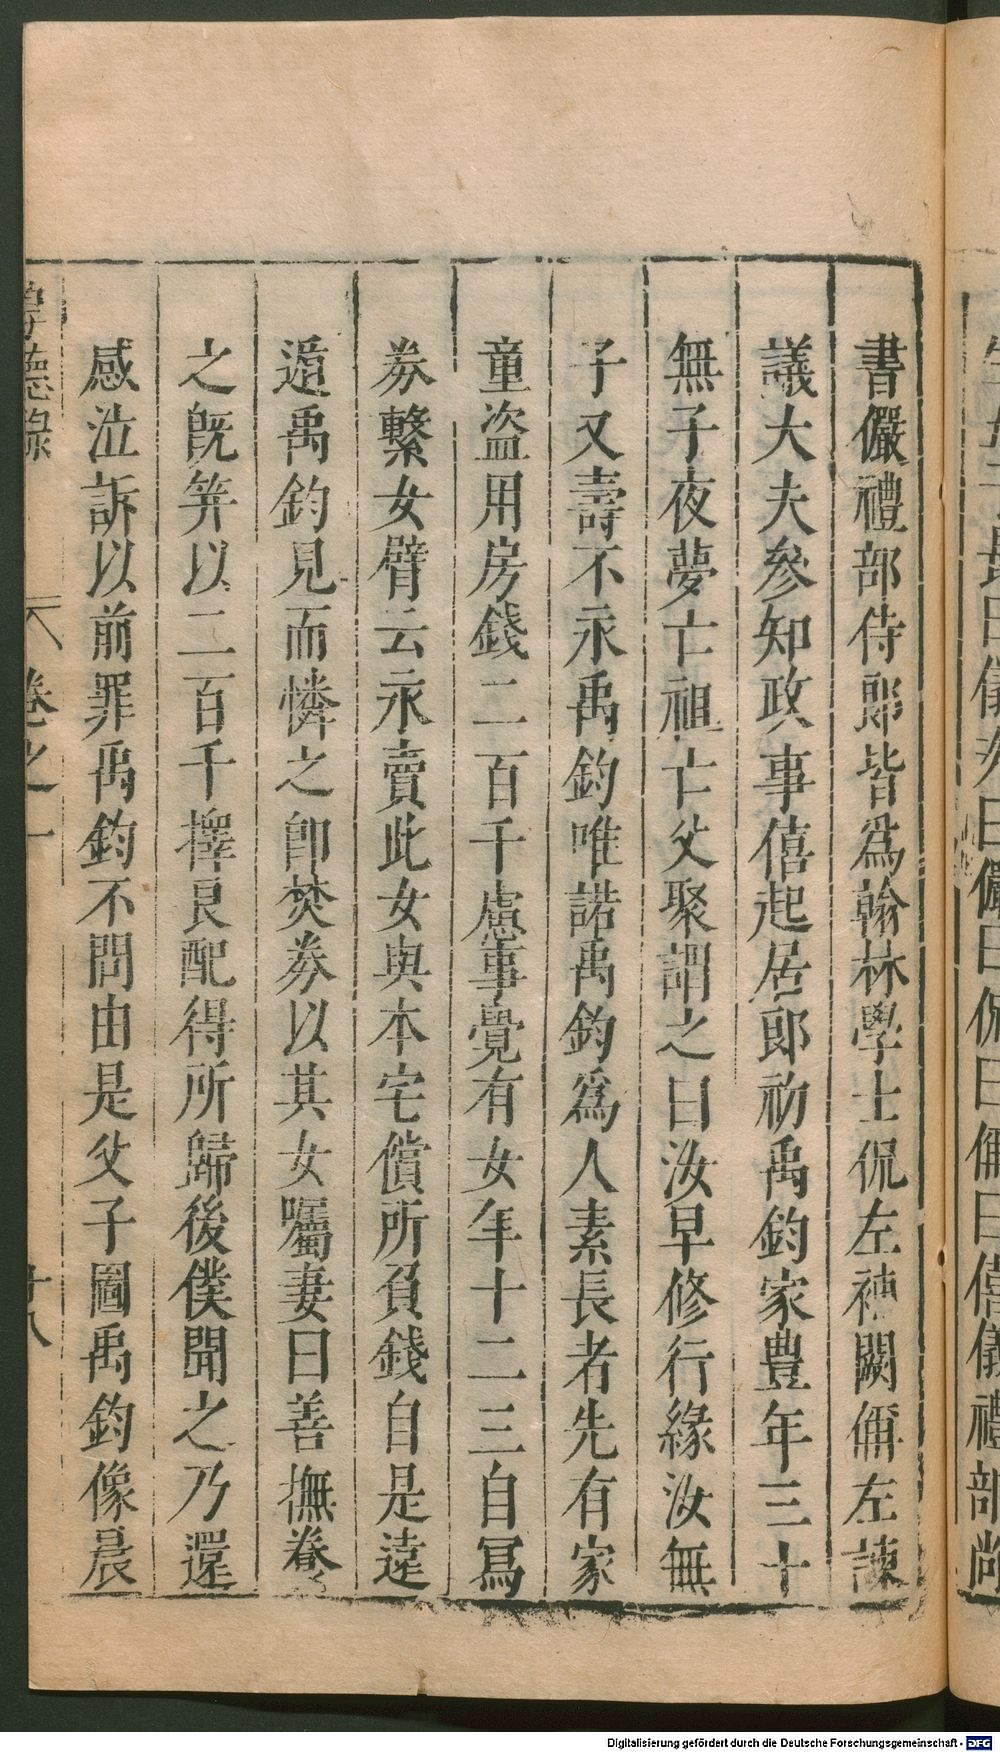 生五子長曰儀次曰儼曰侃曰偁曰僖儀禮部尚
書儼禮部侍郎皆為翰林學士侃左補闕偁左諫
議大夫參知政事僖起居郎初禹鈞家豊年三十
無子夜夢亡祖亡父聚謂之曰汝早修行緣汝無
子又壽不永禹鈞唯諾禹鈞爲人素長者先有家
童盜用房錢二百千慮事覺有女年十二三自寫
券繫女臂云永賣此女與本宅償所負錢自是遠
遁禹鈞見而憐之卽焚券以其女囑妻曰善撫養
之旣笄以二百千擇良配得所歸後僕聞之乃還
感泣訴以前罪禹鈞不問由是父子圖禹鈞像晨
德錄 卷之一 廿八
Digitalisierung gefördert durch die Deutsche Forschungsgemeinschaft - DFG